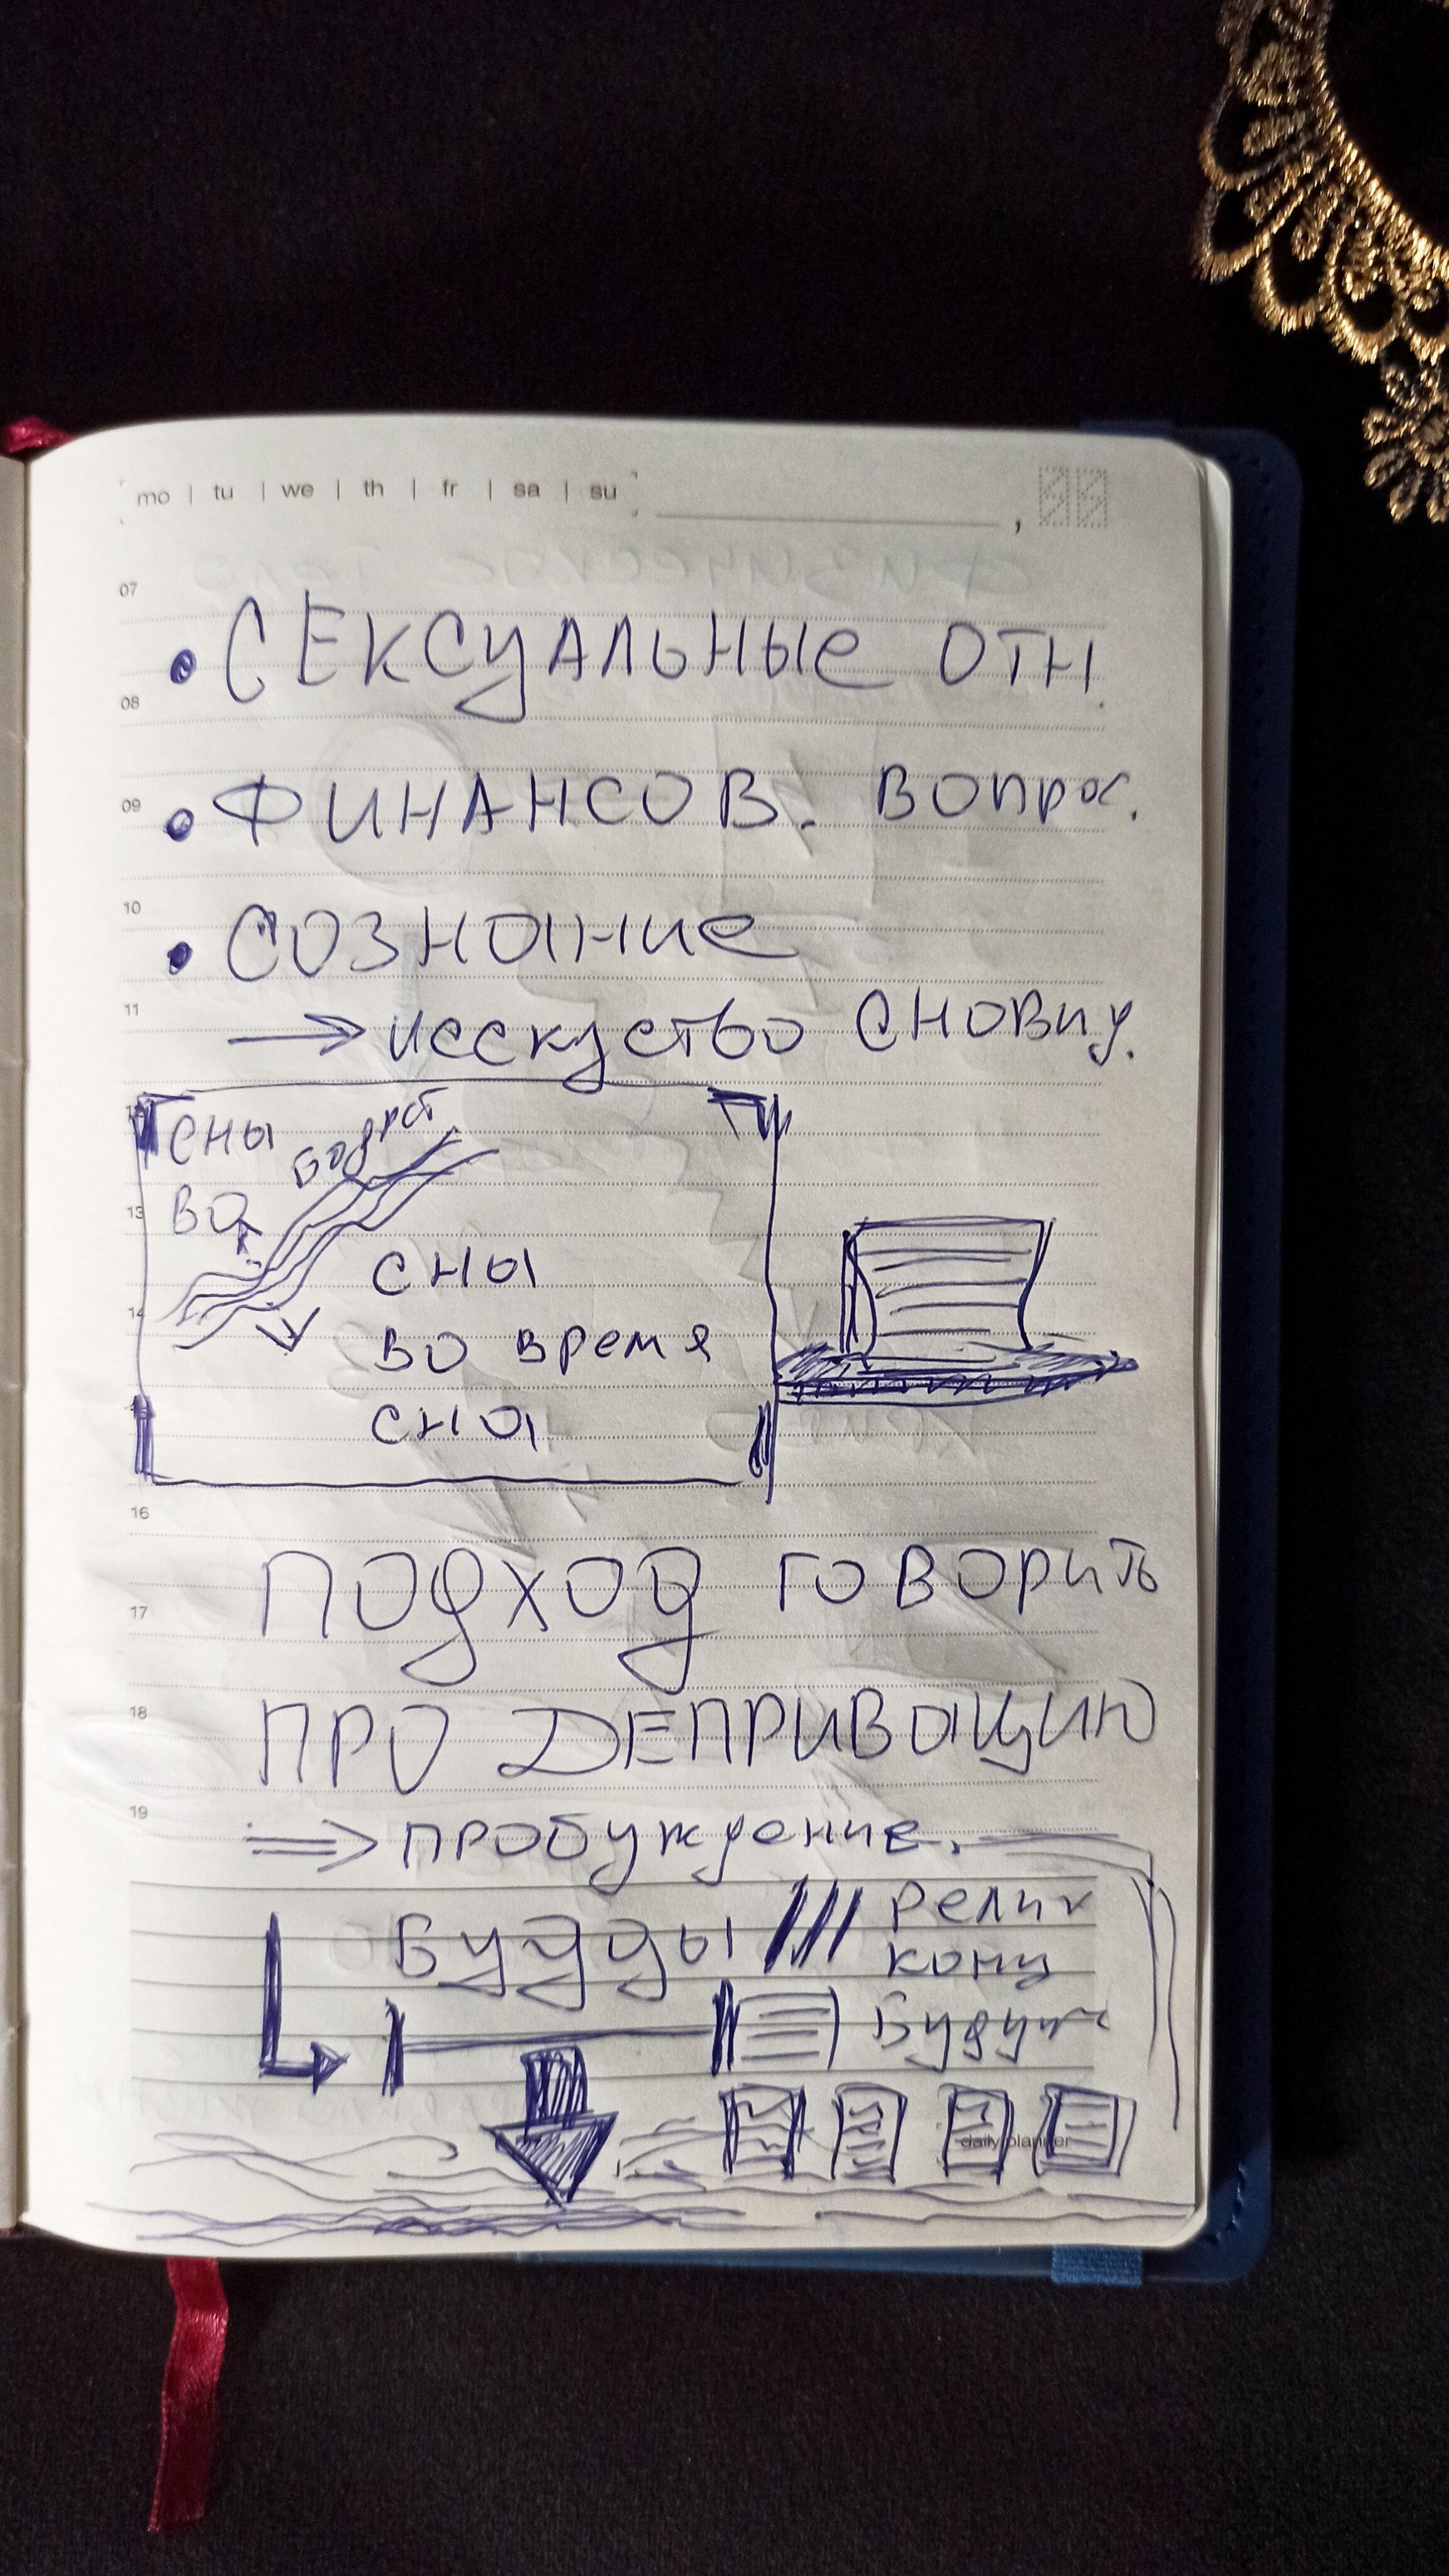 mo | tu | we | th | fr | sa | su
07
• СЕКСУАЛЬНЫе ОТН.
08
09
• ФИНАНСОВ. Вопрос.
10
• СОЗНание
11
→ исскуство СНОВИД.
СНЫ бодрст
13
ВО
14
СНЫ
ВО время
СНа
16
ПОДХОД говорить
17
18
ПРО ДЕПРИВаЦИЮ
19
⇒ пробуждение.
Будды
daily planner